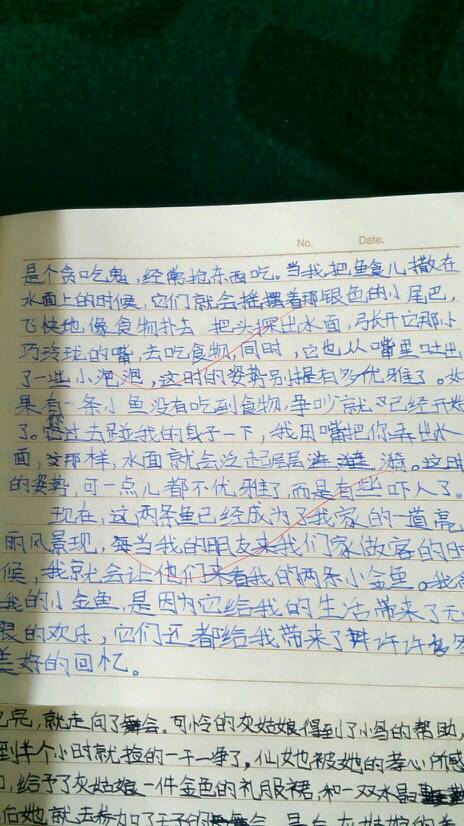 No. Date.
是个贪吃鬼，经常抱东西吃。当我把鱼食儿撒在
水面上的时候，它们就会摇摆着那银色的小尾巴，
飞快地像食物扑去 把头探出水面，张开它那小
巧玲珑的嘴，去吃食物，同时，它也从嘴里吐出
了一些小泡泡，这时的姿势别提有多优雅了。如
果有一条小鱼没有吃到食物，争吵就已经开始
了。过去碰我的身子一下，我用嘴把你弄出水
面，这那样，水面就会泛起层层涟漪。这时
的姿势，可一点儿都不优雅了而是有些吓人了。
现在，这两条鱼已经成为了我家的一道亮
丽风景现，每当我的朋友来我们家做客的时
候，我就会让他们来看我的两条小金鱼。我
我的小金鱼，是因为它给我的生活带来了无
限的欢乐，它们还都给我带来了许许多多
美好的回忆。
亮，就走向了舞会。可怜的灰姑娘得到了小鸟的帮助，
到半个小时就捡的一干二净了，仙女也被她的孝心所感
动，给予了灰姑娘一件金色的礼服裙，和一双水晶
她就去参加了王子的舞会